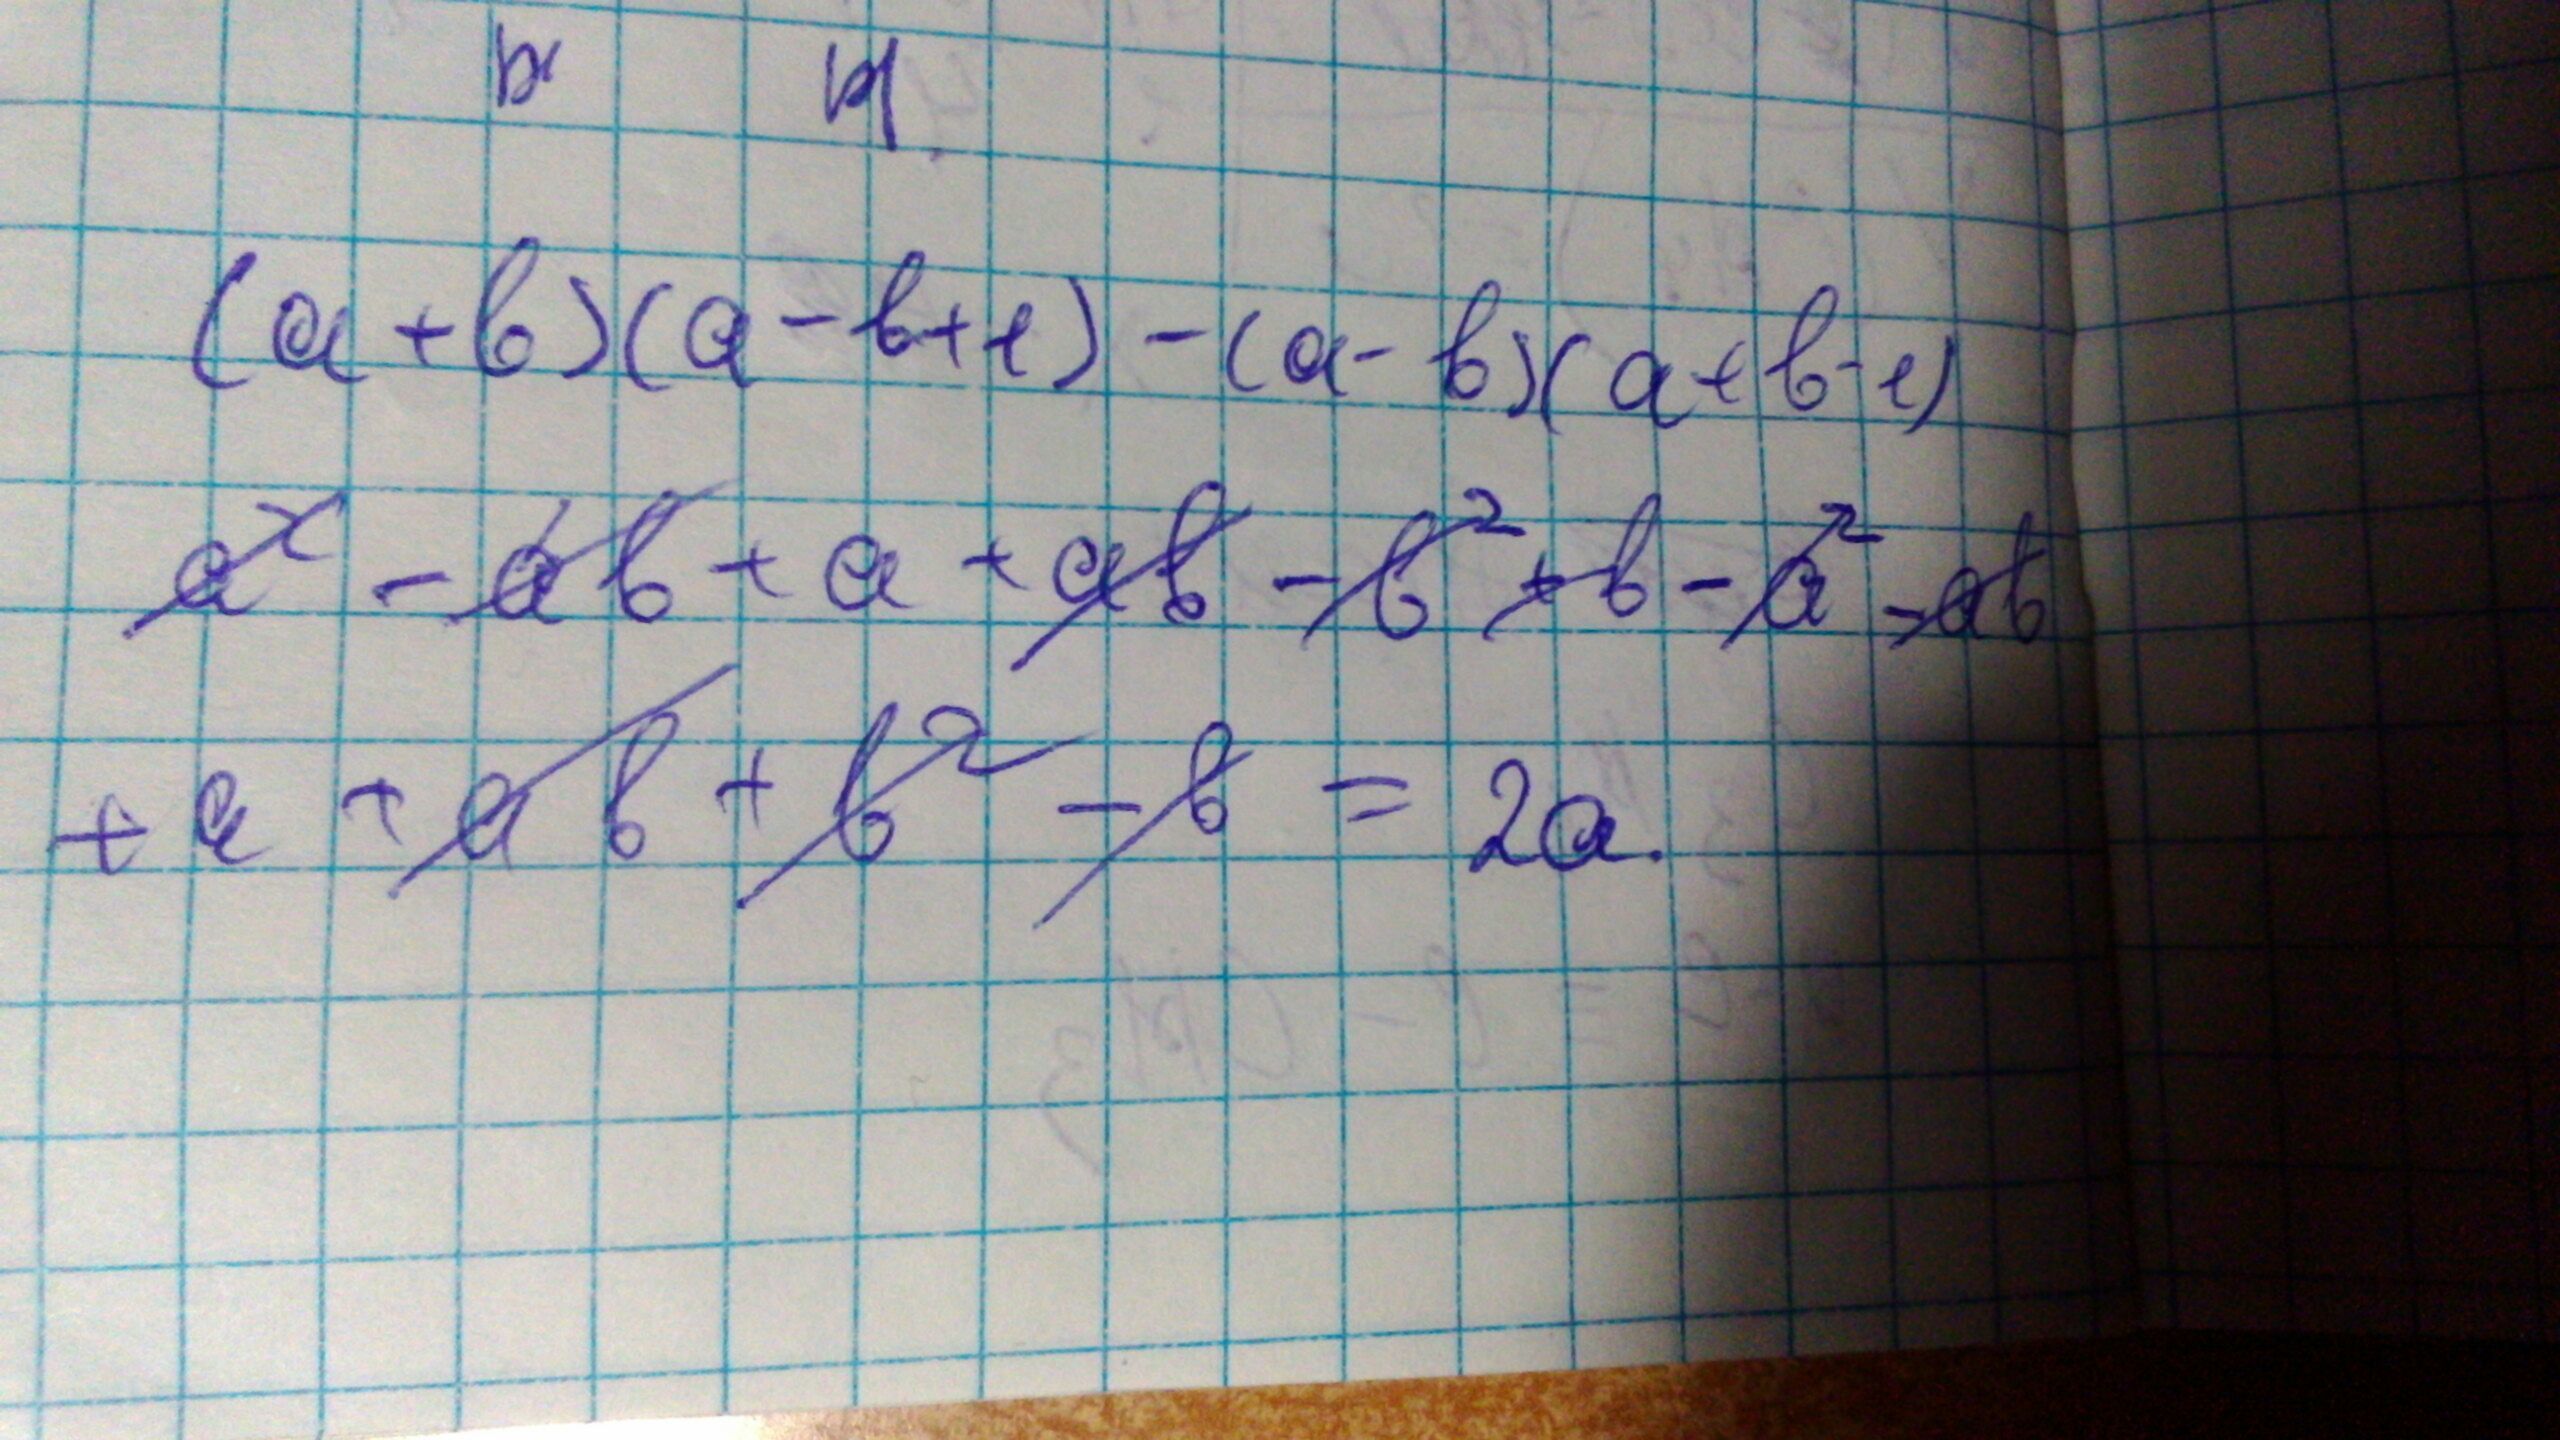 (a+b)(a-b+1)-(a-b)(a+b-1)
a² - ab + a + ab - b² + b - a² - ab
+ a + ab + b² - b = 2a.